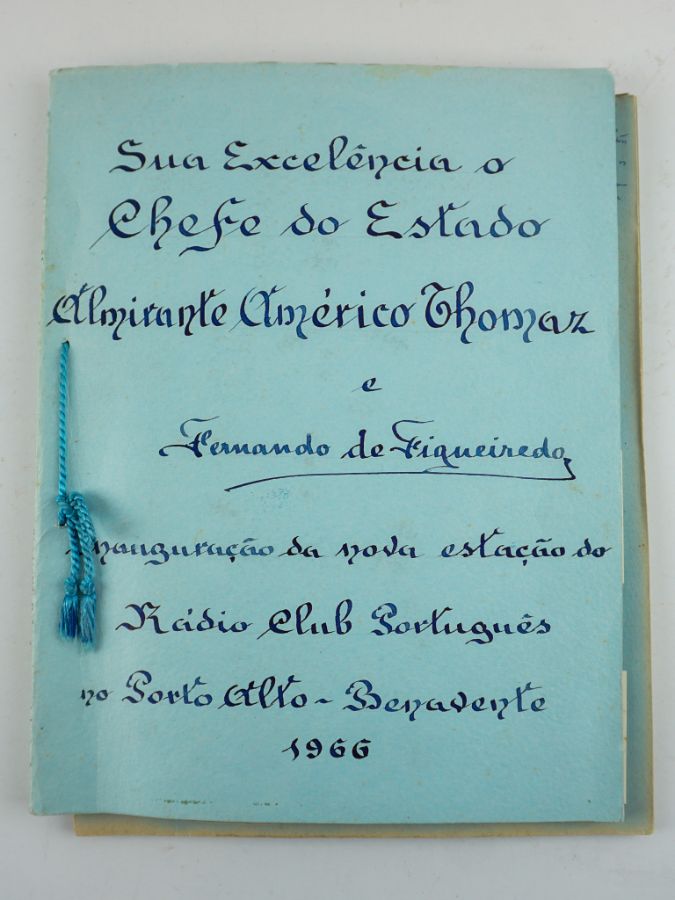 Sua Excelência o
Chefe do Estado
Almirante Américo Thomaz
e
Fernando de Figueiredo
Inauguração da nova estação do
Rádio Club Português
no Porto Alto - Benavente
1966